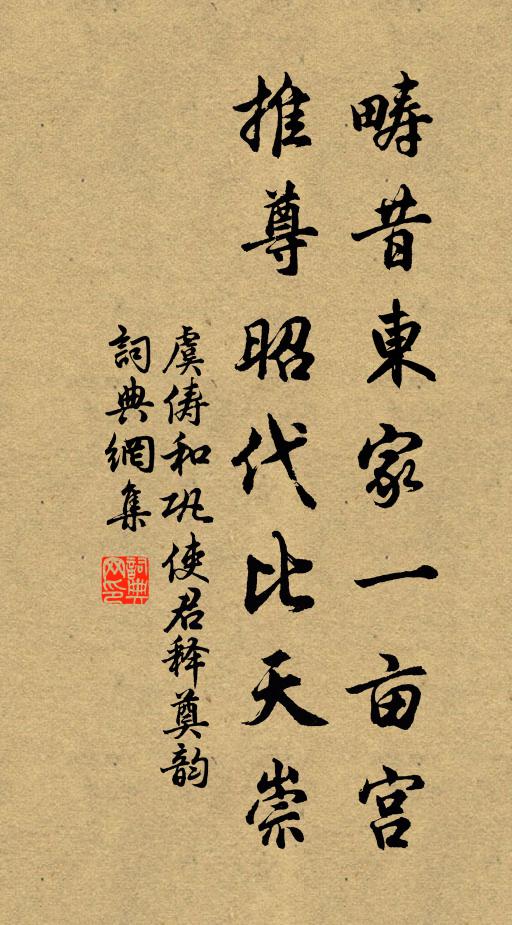 疇昔東家一亩宫
推尊昭代比天崇
虞俦和巩使君释奠韵
詞典網集
詞典网印